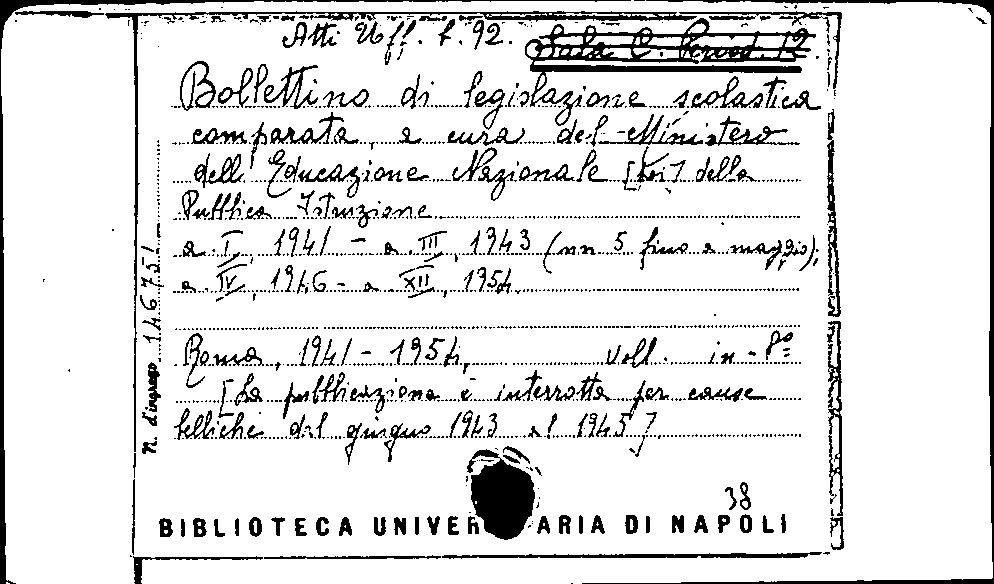 Atti Uff. L. 92. Sala C. Period. 12.
Bollettino di legislazione scolastica
comparata, a cura del Ministero
dell'Educazione Nazionale [poi] della
Pubblica Istruzione
a. I, 1941 - a. III, 1943 (nn 5 fino a maggio);
a. IV, 1946 - a. XII, 1954.
Roma, 1941-1954, voll. in-8º
[La pubblicazione è interrotta per cause
belliche dal giugno 1943 al 1945].
38
BIBLIOTECA UNIVER ARIA DI NAPOLI
N. d'ingresso 146751